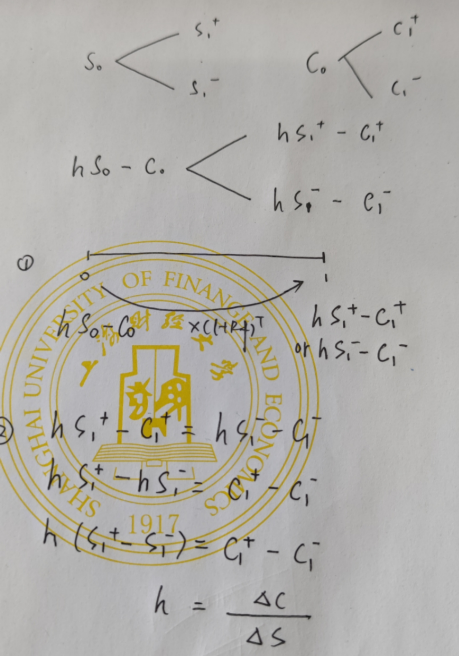 S₀ < S₁⁺ S₁⁻
C₀ < C₁⁺ C₁⁻
hS₀ - C₀ < hS₁⁺ - C₁⁺
hS₁⁻ - C₁⁻
①
0 1
hS₀-C₀ ×(1+Rf)ᵀ hS₁⁺-C₁⁺
or hS₁⁻-C₁⁻
② hS₁⁺-C₁⁺ = hS₁⁻-C₁⁻
hS₁⁺-hS₁⁻ = C₁⁺-C₁⁻
h(S₁⁺-S₁⁻) = C₁⁺-C₁⁻
h = ΔC / ΔS
SHANGHAI UNIVERSITY OF FINANCE AND ECONOMICS
1917